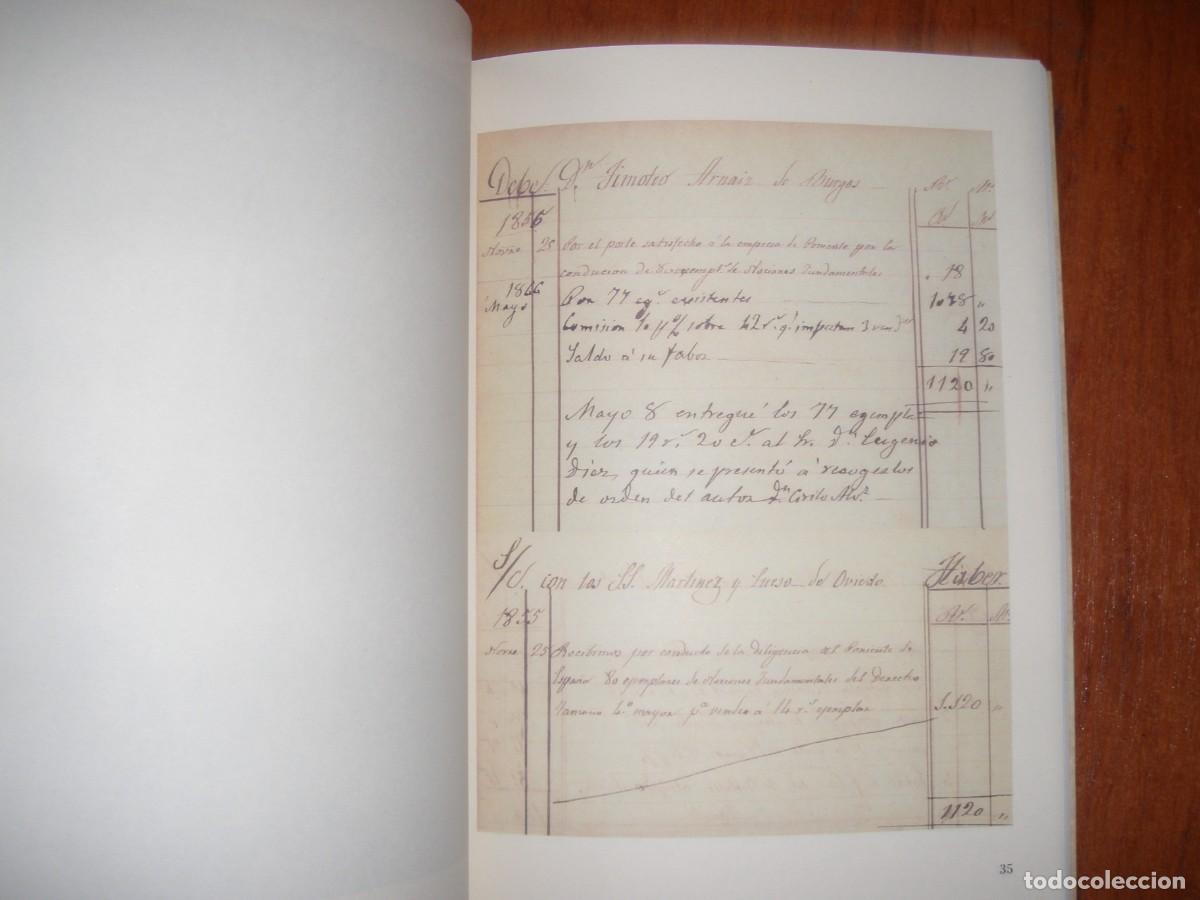 Debe. D.n Timoteo Arnaiz de Burgos Rv. Ms.
1855
Novre 25 Por el porte satisfecho á la empresa de Poniente por la
conducion de exempt.s de Nociones Fundamentales " 18
1866
Mayo Por 77 eg.s existentes 1078 "
Comision 10 p% sobre 42 r.s q.e importan 3 4 20
Saldo á su favor 19 80
1120 "
Mayo 8 entregué los 77 egempla
y los 19 r.s 20 c.s al Sr. D.n Eugenio
Diez, quien se presentó á recogerlos
de orden del autor D.n Cirilo Alv.z
S/C. con los SS. Martinez y de Oviedo Haber.
1855 Rv. Ms.
Novre 25 Recibimos por conducto de la diligencia del Poniente de
España 80 ejemplares de Nociones Fundamentales del Derecho
Tamaño 4.o mayor p.a vender á 14 r.s ejemplar 1.120 "
1120 "
35
todocoleccion